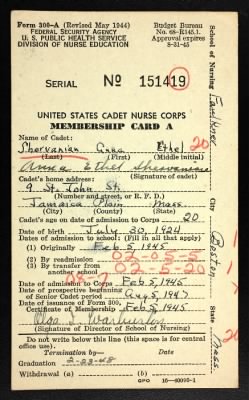 Form 300–A (Revised May 1944)
FEDERAL SECURITY AGENCY
U. S. PUBLIC HEALTH SERVICE
DIVISION OF NURSE EDUCATION
Budget Bureau
No. 68–R145.1.
Approval expires
8-31-45
SERIAL No 151419
UNITED STATES CADET NURSE CORPS
MEMBERSHIP CARD A
Name of Cadet: 20
Shervanian Anna Ethel
(Last) (First) (Middle initial)
Anna Ethel Shervanian
(Signature of cadet)
Cadet's home address:
9 St. John St.
(Number and street, or R. F. D.)
Jamaica Plain Mass.
(City) (County) (State)
Cadet's age on date of admission to Corps 20
Date of birth July 30, 1924
Dates of admission to school: (Fill in all that apply)
(1) Originally Feb 5, 1945
(2) By readmission 02-05-5
(3) By transfer from another school 02-5-20
Date of admission to Corps Feb 5, 1945
Date of prospective beginning of Senior Cadet period Aug 5, 1947
Date of issuance of Form 300, Certificate of Membership Feb 5, 1945
Olga I.
(Signature of Director of School of Nursing)
Do not write below this line (this space is for central office use).
Termination by— Date
Graduation 2-28-48
Withdrawal (a) (b)
GPO 16—40098-1
School of Nursing
City Boston
State Mass.
20